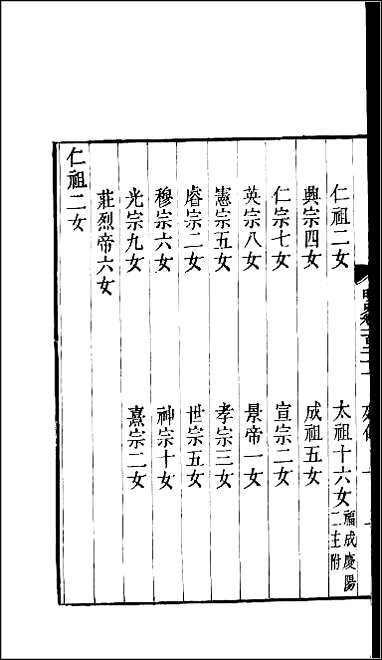 仁祖二女　太祖十六女福成慶陽二主附
興宗四女　成祖五女
仁宗七女　宣宗二女
英宗八女　景帝一女
憲宗五女　孝宗三女
睿宗二女　世宗五女
穆宗六女　神宗十女
光宗九女　熹宗二女
莊烈帝六女
仁祖二女